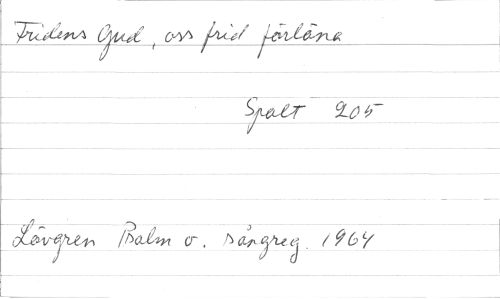 Fridens Gud, oss frid förläna
Spalt 205
Lövgren Psalm o. sångreg. 1964